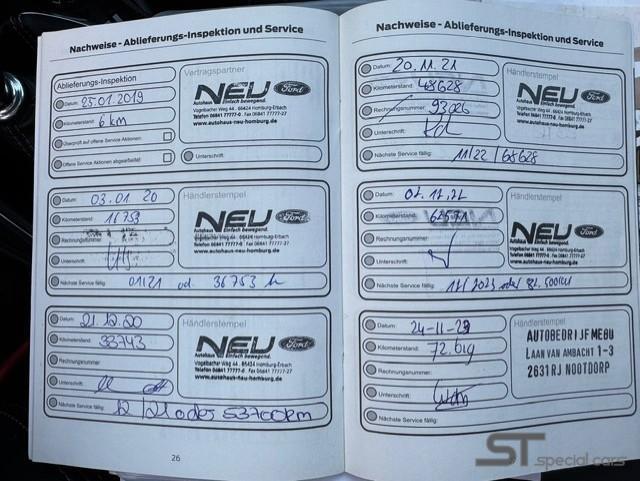 Nachweise - Ablieferungs-Inspektion und Service
Ablieferungs-Inspektion
Datum: 25.01.2019
Kilometerstand: 6 km
Überprüft auf offene Service Aktionen:
Offene Service Aktionen abgearbeitet:
Vertragspartner
NEU Ford
Autohaus Einfach bewegend.
Vogelbacher Weg 44 · 66424 Homburg-Erbach
Telefon 06841 77777-0 Fax 06841 77777-27
www.autohaus-neu-homburg.de
Unterschrift:
Datum: 03.01.20
Kilometerstand: 16753
Rechnungsnummer:
Unterschrift:
Nächste Service fällig: 01/21 od. 36753 k
Händlerstempel
NEU Ford
Autohaus Einfach bewegend.
Vogelbacher Weg 44 · 66424 Homburg-Erbach
Telefon 06841 77777-0 Fax 06841 77777-27
www.autohaus-neu-homburg.de
Datum: 21.12.20
Kilometerstand: 33743
Rechnungsnummer:
Unterschrift:
Nächste Service fällig: 12/21 oder 53700km
Händlerstempel
NEU Ford
Autohaus Einfach bewegend.
Vogelbacher Weg 44 · 66424 Homburg-Erbach
Telefon 06841 77777-0 Fax 06841 77777-27
www.autohaus-neu-homburg.de
26
Nachweise - Ablieferungs-Inspektion und Service
Datum: 20.11.21
Kilometerstand: 48628
Rechnungsnummer: 93026
Unterschrift:
Nächste Service fällig: 11/22 / 68628
Händlerstempel
NEU Ford
Autohaus Einfach bewegend.
Vogelbacher Weg 44 · 66424 Homburg-Erbach
Telefon 06841 77777-0 Fax 06841 77777-27
www.autohaus-neu-homburg.de
Datum:
Kilometerstand: 62571
Rechnungsnummer:
Unterschrift:
Nächste Service fällig: 12/2023 oder 82.500km
Händlerstempel
NEU Ford
Autohaus Einfach bewegend.
Vogelbacher Weg 44 · 66424 Homburg-Erbach
Telefon 06841 77777-0 Fax 06841 77777-27
www.autohaus-neu-homburg.de
Datum: 24-11-23
Kilometerstand: 72.619
Rechnungsnummer:
Unterschrift:
Nächste Service fällig:
Händlerstempel
AUTOBEDRIJF MEBU
LAAN VAN AMBACHT 1-3
2631 RJ NOOTDORP
ST special cars